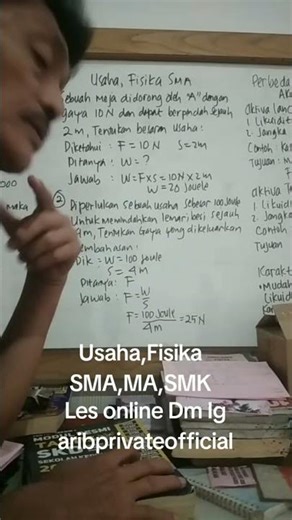 Usaha, Fisika SMA
Sebuah Meja didorong oleh "A" dengan
gaya 10 N dan dapat berpindah sejauh
2 m, Tentukan besaran usaha:
Diketahui : F = 10 N S = 2m
Ditanya : W = ?
Jawab : W = F x S = 10 N x 2 m
W = 20 Joule
② Diperlukan Sebuah usaha Sebesar 100 Joule
Untuk memindahkan lemari besi sejauh
4m, Tentukan Gaya yang dikeluarkan
Pembahasan :
Dik : W = 100 Joule
S = 4 m
Ditanya : F
Jawab : F = W/S
F = 100 Joule/4m = 25 N
Perbeda
aktiva lanc
1. Likuidit
2. Jangka
Contoh : Ka
Tujuan : M
aktiva Te
1. Likuid
2. Jang
Contoh
Tujuan
Karakt
Mudah
Likuid
000
maka
Usaha,Fisika
SMA,MA,SMK
Les online Dm Ig
aribprivateofficial